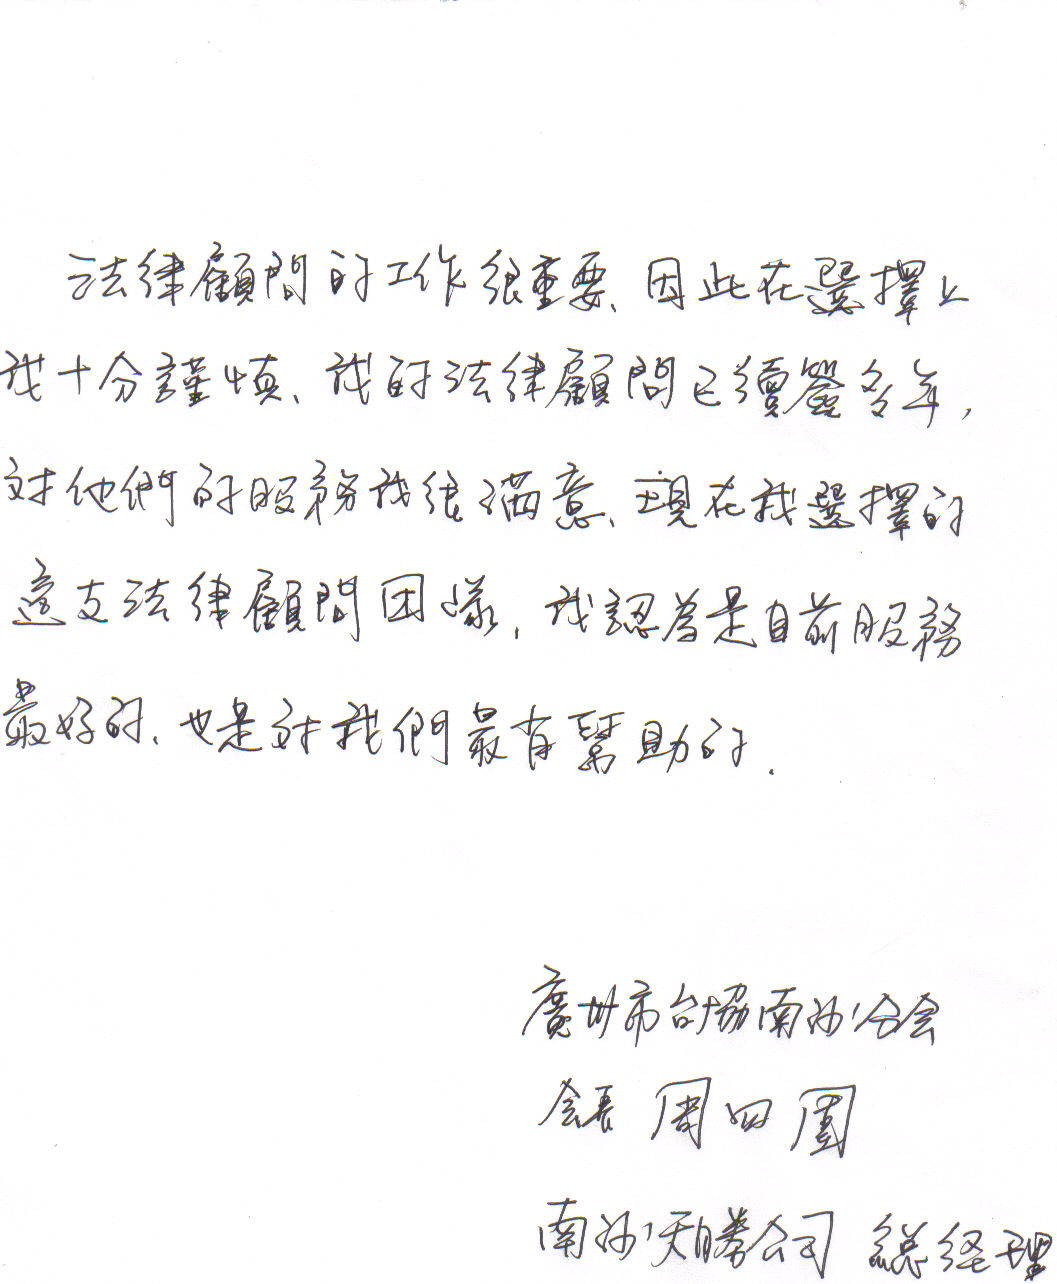 法律顧問的工作很重要、因此在選擇上
我十分謹慎、我的法律顧問已續簽多年,
对他們的服務我很满意、現在我選擇的
這支法律顧問团隊,我認為是目前服務
最好的、也是对我們最有幫助的.
廣州市台协南沙分会
会長 周四
南沙天勝公司 總经理